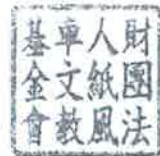 財團法
人紙風
車文教
基金會